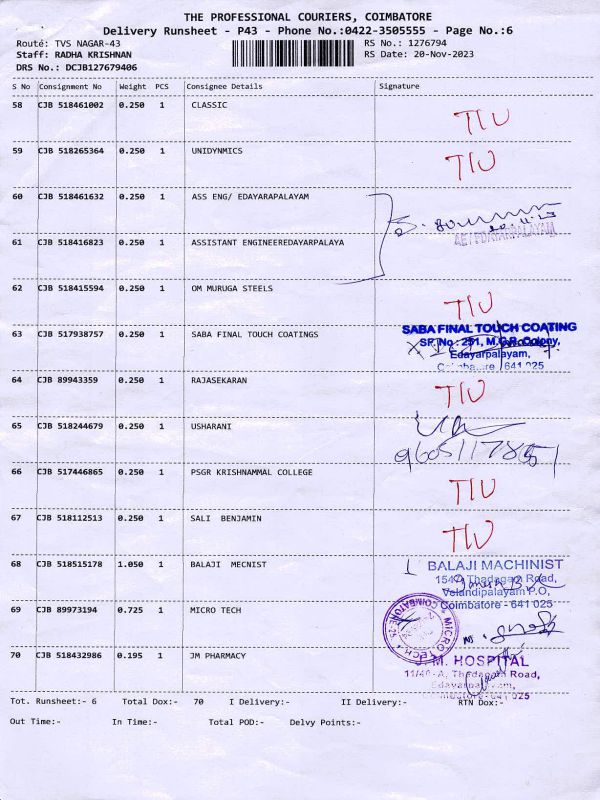 THE PROFESSIONAL COURIERS, COIMBATORE
Delivery Runsheet - P43 - Phone No.:0422-3505555 - Page No.:6
Route: TVS NAGAR-43 RS No.: 1276794
Staff: RADHA KRISHNAN RS Date: 20-Nov-2023
DRS No.: DCJB127679406
S No Consignment No Weight PCS Consignee Details Signature
58 CJB 518461002 0.250 1 CLASSIC TIU
59 CJB 518265364 0.250 1 UNIDYNMICS TIU
60 CJB 518461632 0.250 1 ASS ENG/ EDAYARAPALAYAM
AE/EDAYARPALAYAM
61 CJB 518416823 0.250 1 ASSISTANT ENGINEEREDAYARPALAYA
62 CJB 518415594 0.250 1 OM MURUGA STEELS TIU
63 CJB 517938757 0.250 1 SABA FINAL TOUCH COATINGS SABA FINAL TOUCH COATING
SF.No : 251, M.G.R. Colony,
Edayarpalayam,
Coimbatore 641 025
64 CJB 89943359 0.250 1 RAJASEKARAN TIU
65 CJB 518244679 0.250 1 USHARANI
66 CJB 517446865 0.250 1 PSGR KRISHNAMMAL COLLEGE TIU
67 CJB 518112513 0.250 1 SALI BENJAMIN TIU
68 CJB 518515178 1.050 1 BALAJI MECNIST BALAJI MACHINIST
Thadagam Road,
Velandipalayam P.O,
Coimbatore - 641 025
69 CJB 89973194 0.725 1 MICRO TECH MICRO TECH
COIMBATORE-25
70 CJB 518432986 0.195 1 JM PHARMACY J.M. HOSPITAL
Thadagam Road,
Edayarpalayam,
Coimbatore-641 025
Tot. Runsheet:- 6 Total Dox:- 70 I Delivery:- II Delivery:- RTN Dox:-
Out Time:- In Time:- Total POD:- Delvy Points:-